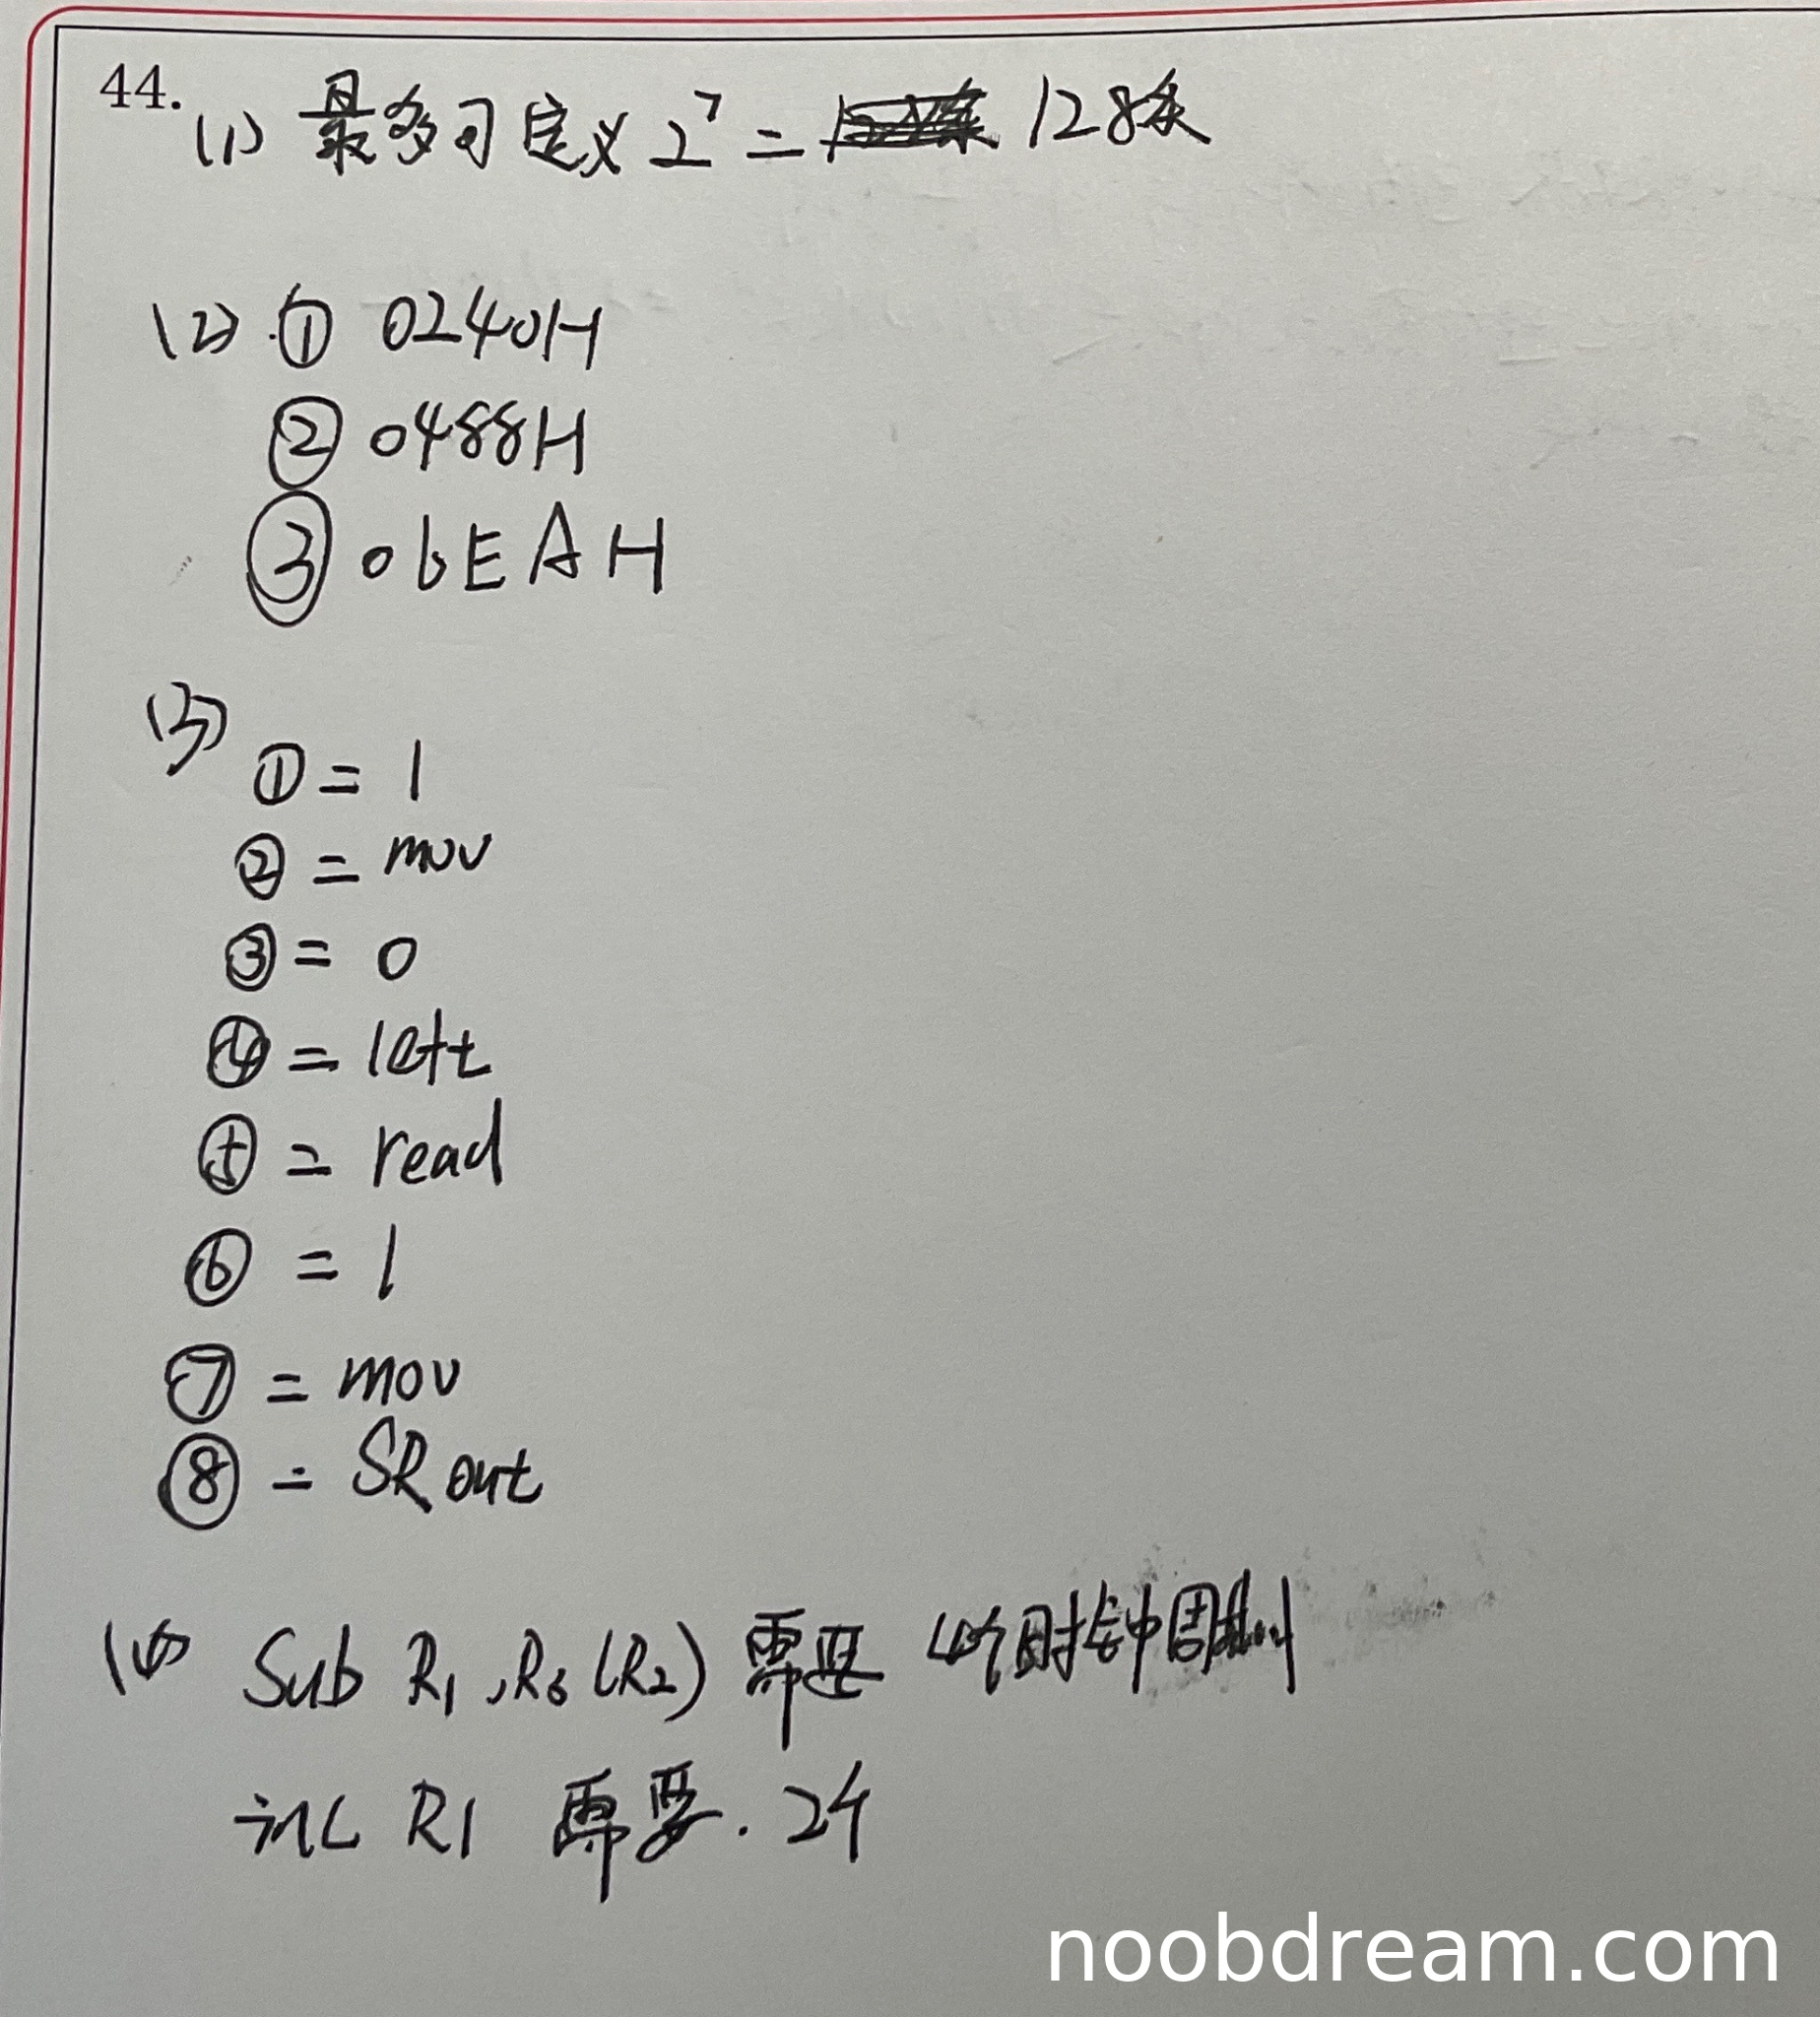 44.
(1) 最多可定义 2⁷ = 128条
(2) ① 0240H
② 0488H
③ 06EAH
(3)
① = 1
② = mov
③ = 0
④ = left
⑤ = read
⑥ = 1
⑦ = mov
⑧ = SRout
(4) Sub R1,R3(R2) 需要 4个时钟周期
inc R1 需要. 2个
noobdream.com